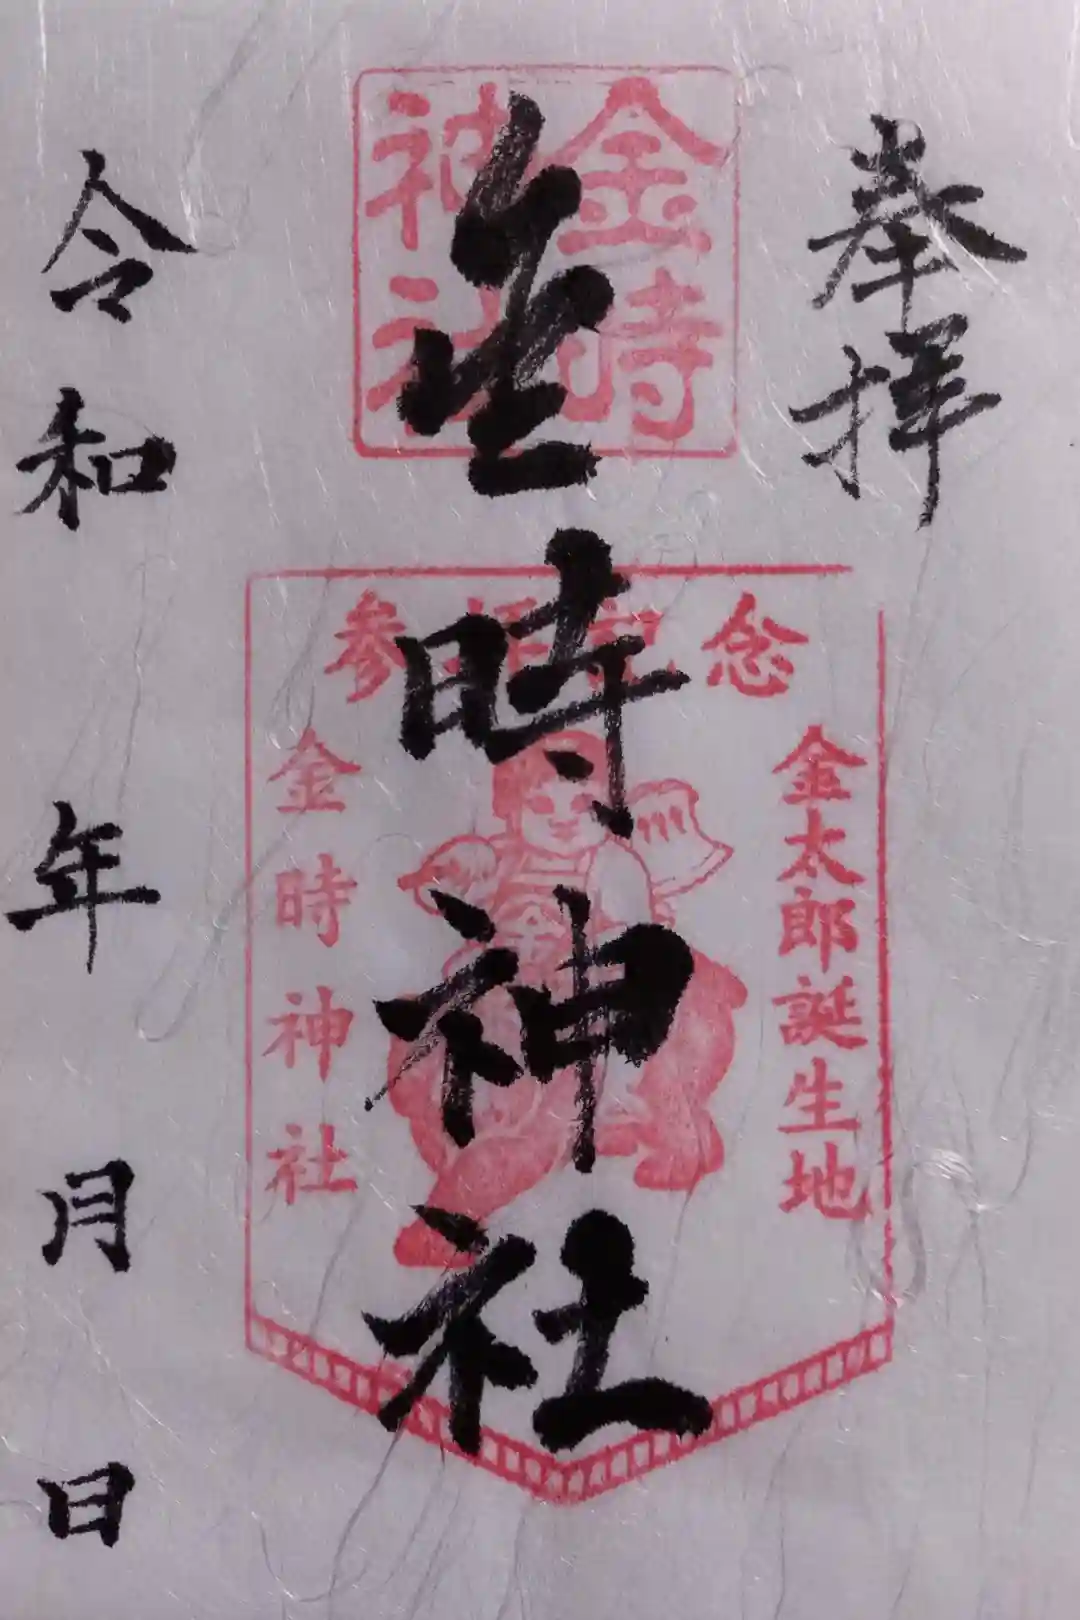 奉拝
金時神社
金時神社
参拝記念
金太郎誕生地
金
金時神社
令和 年 月 日